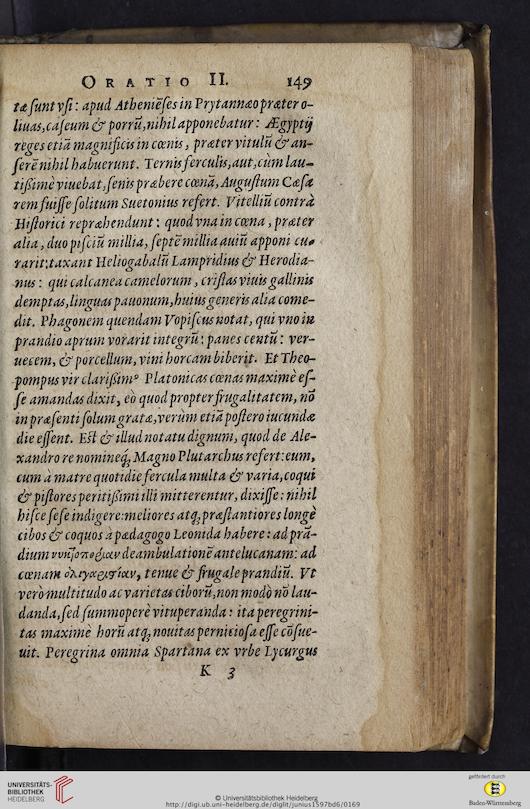 ORATIO II. 149
tæ ſunt vſi: apud Atheniẽſes in Prytannæo præter o-
liuas, caſeum & porrũ, nihil apponebatur: Ægyptij
reges etiã magnificis in cœnis, præter vitulũ & an-
ſerẽ nihil habuerunt. Ternis ferculis, aut, cùm lau-
tißimè viuebat, ſenis præbere cœnã, Auguſtum Cæſa
rem fuiſſe ſolitum Suetonius refert. Vitelliũ contrà
Hiſtorici repræhendunt: quod vna in cœna, præter
alia, duo piſciũ millia, ſeptẽ millia auiũ apponi cu-
rarit: taxant Heliogabalũ Lampridius & Herodia-
nus: qui calcanea camelorum, criſtas viuis gallinis
demptas, linguas pauonum, huius generis alia come-
dit. Phagonem quendam Vopiſcus notat, qui vno in
prandio aprum vorarit integrũ: panes centũ: ver-
uecem, & porcellum, vini horcam biberit. Et Theo-
pompus vir clarißimꝰ Platonicas cœnas maximè eſ-
ſe amandas dixit, eò quod propter frugalitatem, nõ
in præſenti ſolum gratæ, verùm etiã poſtero iucundæ
die eſſent. Eſt & illud notatu dignum, quod de Ale-
xandro re nomineq́; Magno Plutarchus refert: eum,
cum à matre quotidie fercula multa & varia, coqui
& piſtores peritißimi illi mitterentur, dixiſſe: nihil
hiſce ſeſe indigere: meliores atq; præſtantiores longè
cibos & coquos à pædagogo Leonida habere: ad prã-
dium νυκτοπορίαν deambulationẽ antelucanam: ad
cœnam ὀλιγαριστίαν, tenue & frugale prandiũ. Vt
verò multitudo ac varietas ciborũ, non modò nõ lau-
danda, ſed ſummoperè vituperanda: ita peregrini-
tas maximè horũ atq; nouitas pernicioſa eſſe cõſue-
uit. Peregrina omnia Spartana ex vrbe Lycurgus
K 3
UNIVERSITÄTS-
BIBLIOTHEK
HEIDELBERG
© Universitätsbibliothek Heidelberg
http://digi.ub.uni-heidelberg.de/diglit/junius1597bd6/0169
gefördert durch
Baden-Württemberg